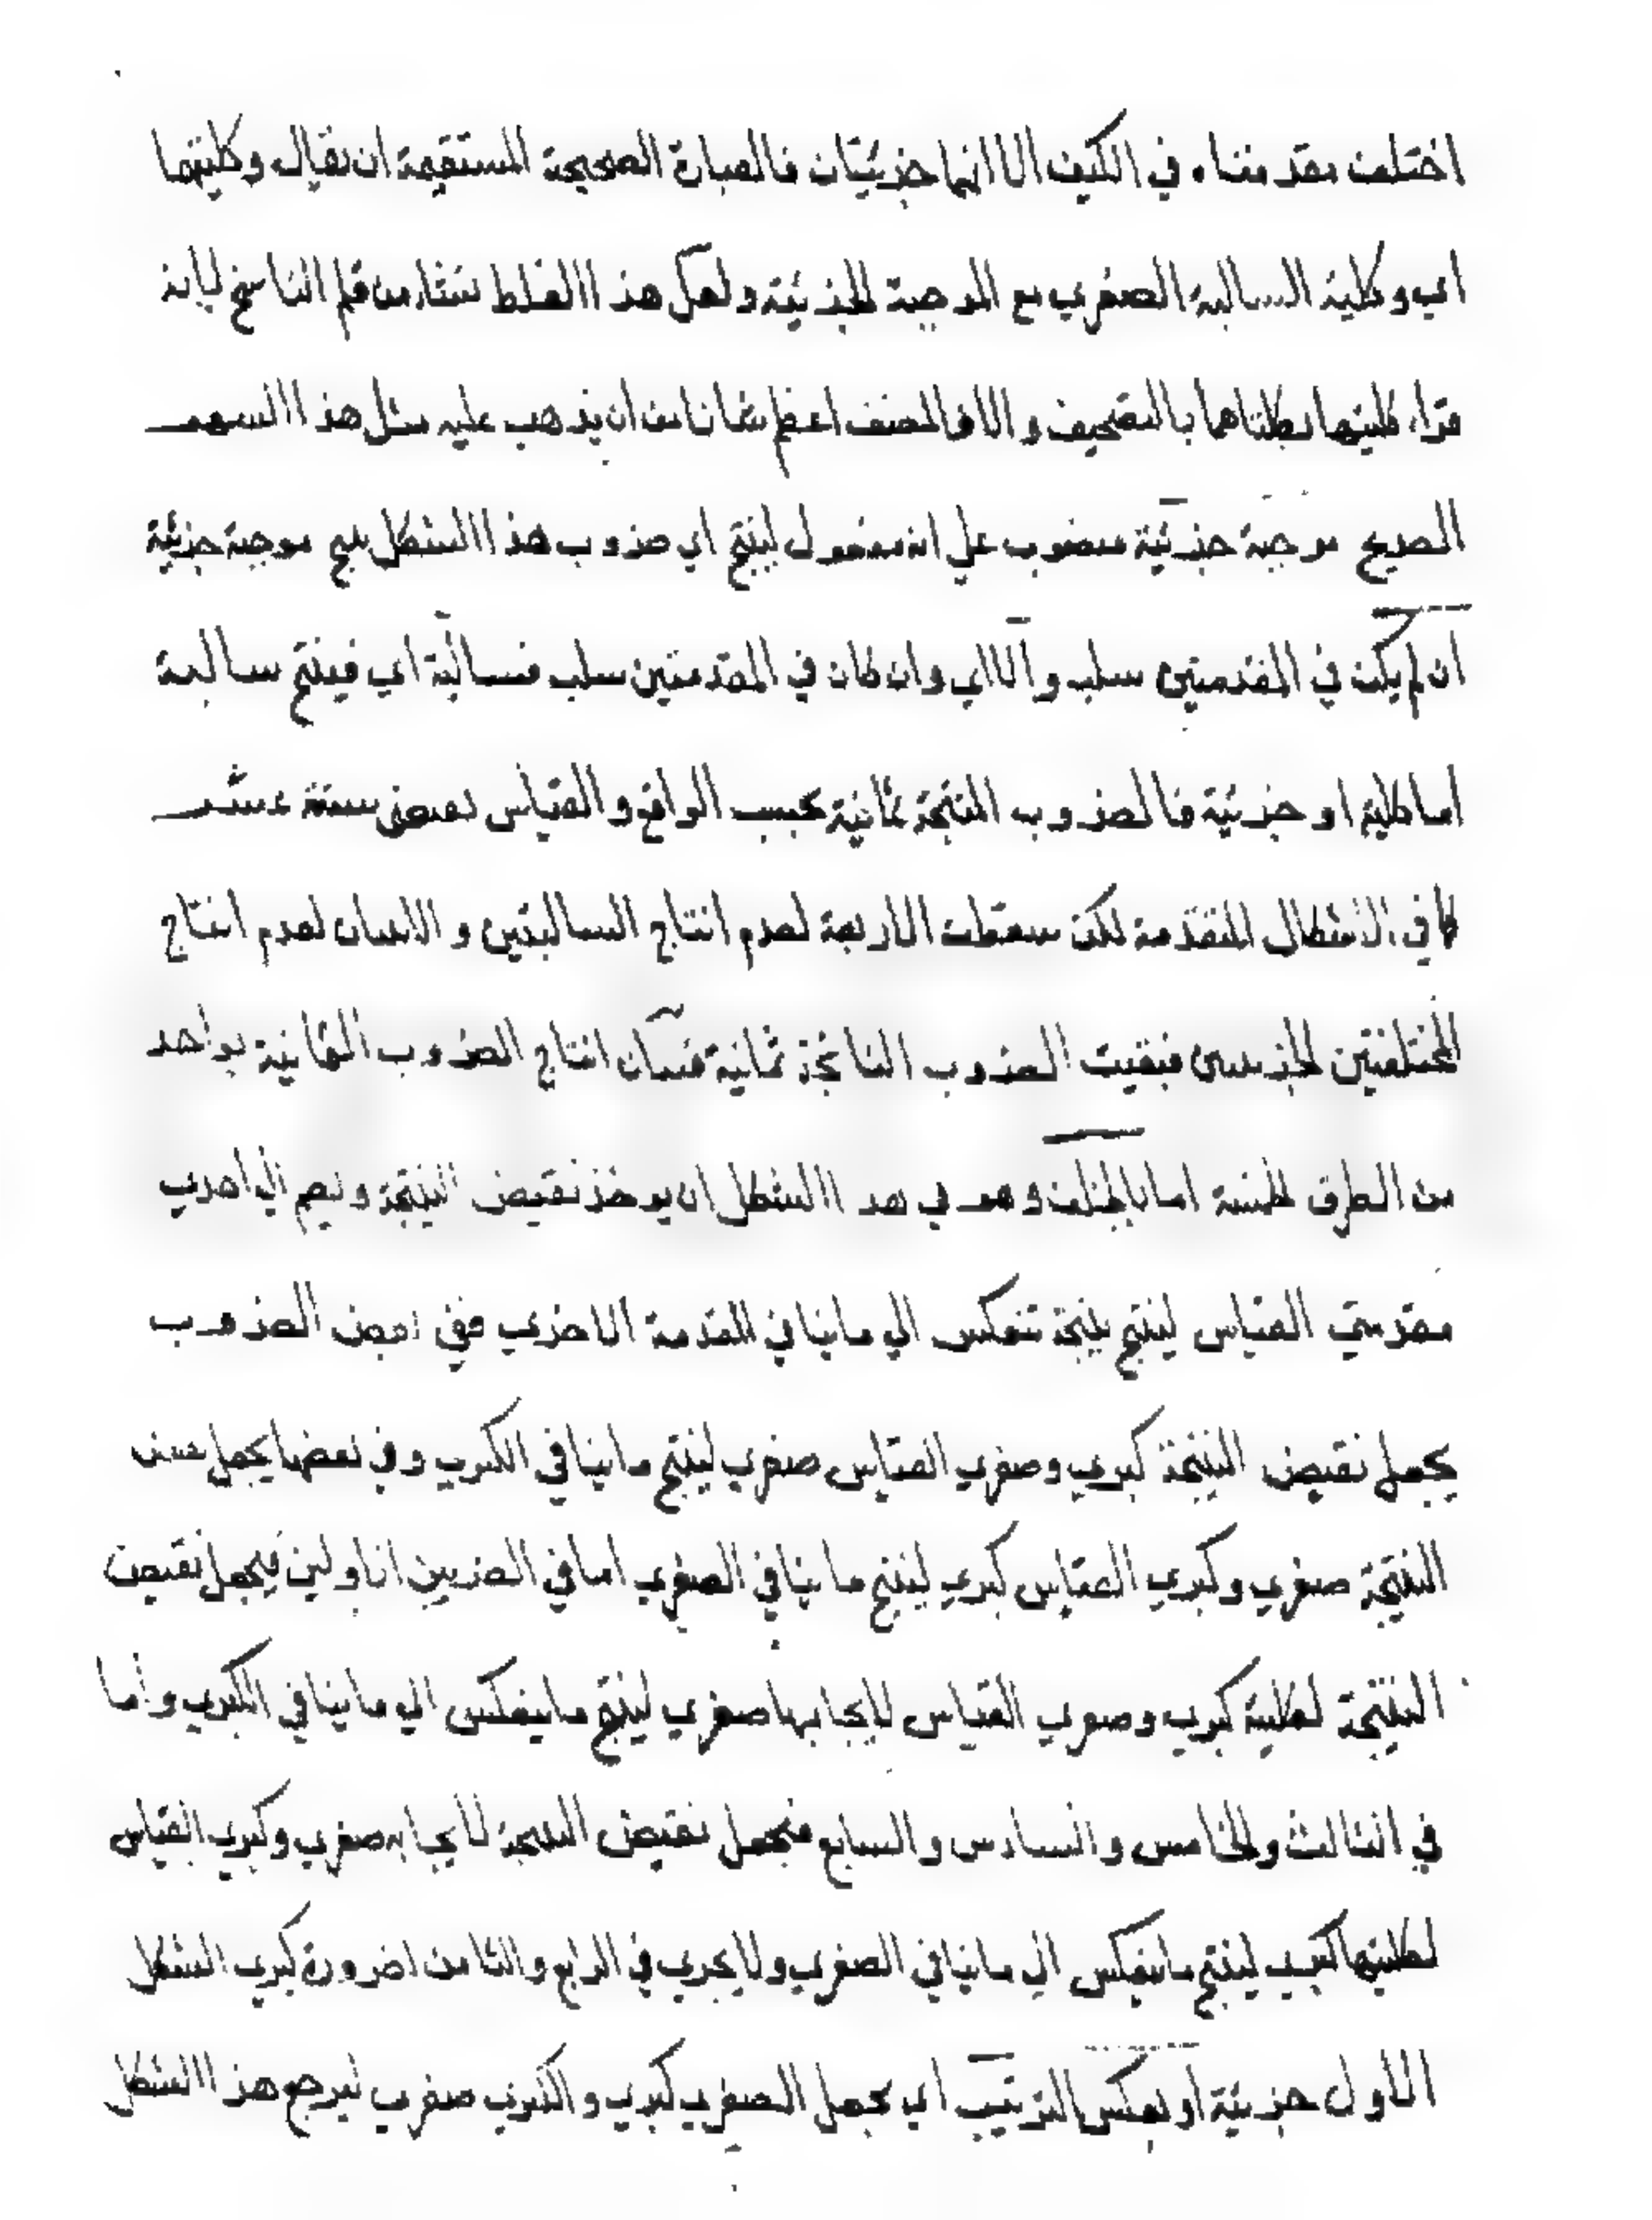 اختلف مقدمتاه في الكيف الا انهما جزئيتان فالعبارة الصحيحة المستقيمة ان يقال وكليتهما
اي وكلية السالبة الصغري مع الموجبة الجزئية ولعل هذا الغلط نشاء من قلم الناسخ لانه
قراء كليتهما بكلتاهما بالتصحيف والا فالمصنف اعظم شانا من ان يذهب عليه مثل هذا السهو
الصريح موجبة جزئية منصوب علي انه مفعول لينتج اي ضروب هذا الشكل ينتج موجبة جزئية
ان لم يكن في المقدمتين سلب والا اي وان كان في المقدمتين سلب فسالبة اي فينتج سالبة
اما كلية او جزئية فالضروب المنتجة ثمانية بحسب الواقع والقياس يقتضي ستة عشر
كما في الاشكال المتقدمة لكن سقطت الاربعة لعدم انتاج السالبتين و الاثنان لعدم انتاج
المختلفتين الجزئيتين فبقيت الضروب الناتجة ثمانية فبيان انتاج الضروب الثمانية بواحد
من الطرق الخمسة اما بالخلف وهو في هذا الشكل ان يوخذ نقيض النتيجة ويضم الي احدي
مقدمتي القياس لينتج نتيجة تنعكس الي ما ينافي المقدمة الاخري ففي بعض الضروب
يجعل نقيض النتيجة كبري وصغري القياس صغري لينتج ما ينافي الكبري وفي بعضها يجعل نقيض
النتيجة صغري وكبري القياس كبري لينتج ما ينافي الصغري اما في الضربين الاولين فيجعل نقيض
النتيجة لكلية كبري وصغري القياس لايجابها صغري لينتج ما ينعكس الي ما ينافي الكبري واما
في الثالث والخامس والسادس والسابع فنجعل نقيض النتيجة لايجابه صغري وكبري القياس
لكليتها كبري لينتج ما ينعكس الي ما ينافي الصغري ولا يجري في الرابع والثامن لضرورة كبري الشكل
الاول جزئية او بعكس الترتيب اي بجعل الصغري كبري والكبري صغري ليرجع هذا الشكل